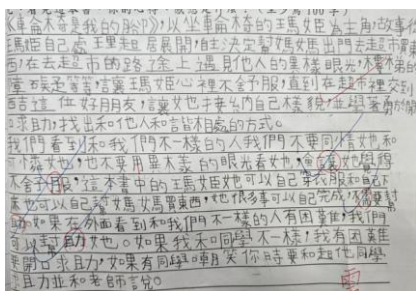 《車輪椅是我的腳》，以坐輪椅的瑪姬為主角，故事從
瑪姬自己處理起居展開，自主決定幫媽媽出門去超市買
西，在去超市的路途上遇見他人的異樣眼光，
障礙走等等，讓瑪姬心裡不舒服，直到在超市裡交到
西吉這位好朋友，讓她接納自己樣貌，並學著勇於開
口求助，找出和他人和諧相處的方式。
我們看到和我們不一樣的人我們不要同情她也和
可憐她，也不要用異木樣的眼光看她，會讓她覺得
不舍予服，這本書中的瑪姬她可以自己穿衣服和自己下
也可以自己幫媽媽買東西，她很多事可以自己完成，不需要幫
如果在外面看到和我們不一樣的人有困難，我們
可以幫助她。如果我和同學不一樣，我有困難
開口求助，如果有同學嘲笑你時要和起他同學
且力並和老師說。